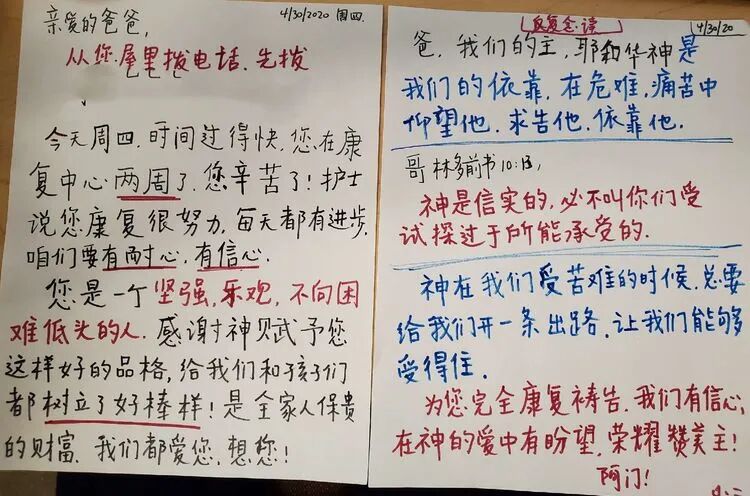 亲爱的爸爸,
4/30/2020 周四.
从您屋里拨电话.先拨
今天周四.时间过得快.您在康
复中心两周了.您辛苦了!护士
说您康复很努力,每天都有进步,
咱们要有耐心,有信心.
您是一个坚强,乐观,不向困
难低头的人.感谢神赋予您
这样好的品格,给我们和孩子们
都树立了好榜样!是全家人保贵
的财富.我们都爱您,想您!
反复念.读
4/30/20
爸,我们的主,耶和华神是
我们的依靠.在危难,痛苦中
仰望他.求告他.依靠他.
哥林多前书10:13,
神是信实的,必不叫你们受
试探过于所能承受的.
神在我们受苦难的时候,总要
给我们开一条出路.让我们能够
受得住.
为您完全康复祷告.我们有信心,
在神的爱中有盼望,荣耀赞美主!
阿门!